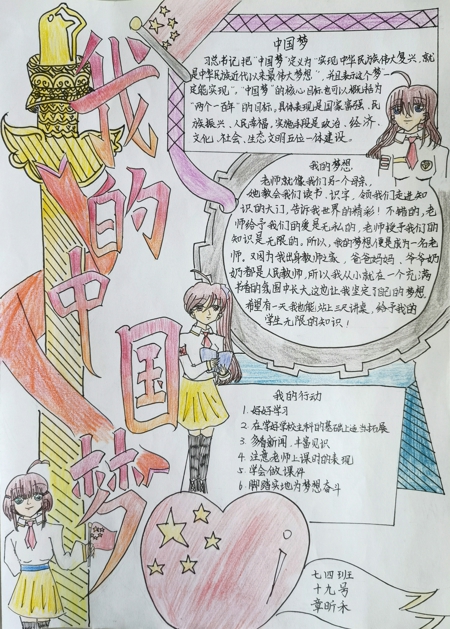 我的中国梦
中国梦
习总书记把"中国梦"定义为"实现中华民族伟大复兴,就
是中华民族近代以来最伟大梦想",并且表示这个梦"一
定能实现"。"中国梦"的核心目标也可以概括为
"两个一百年"的目标,具体表现是国家富强、民
族振兴、人民幸福,实施手段是政治、经济、
文化、社会、生态文明五位一体建设。
我的梦想
老师就像我们另一个母亲,
她教会我们读书、识字,领我们走进知
识的大门,告诉我世界的精彩!不错的,老
师给予我们的爱是无私的,老师授予我们的
知识是无限的。所以,我的梦想便是成为一名老
师。又因为我出身教师之家,爸爸妈妈、爷爷奶
奶都是人民教师,所以我从小就在一个充满
书香的氛围中长大,这也让我坚定了自己的梦想。
希望有一天我也能站上三尺讲桌,给予我的
学生无限的知识!
我的行动
1.好好学习
2.在学好学校主科的基础上适当拓展
3.多看新闻,丰富见识
4.注意老师上课时的表现
5.学会做课件
6.脚踏实地为梦想奋斗
七四班
十九号
章昕永